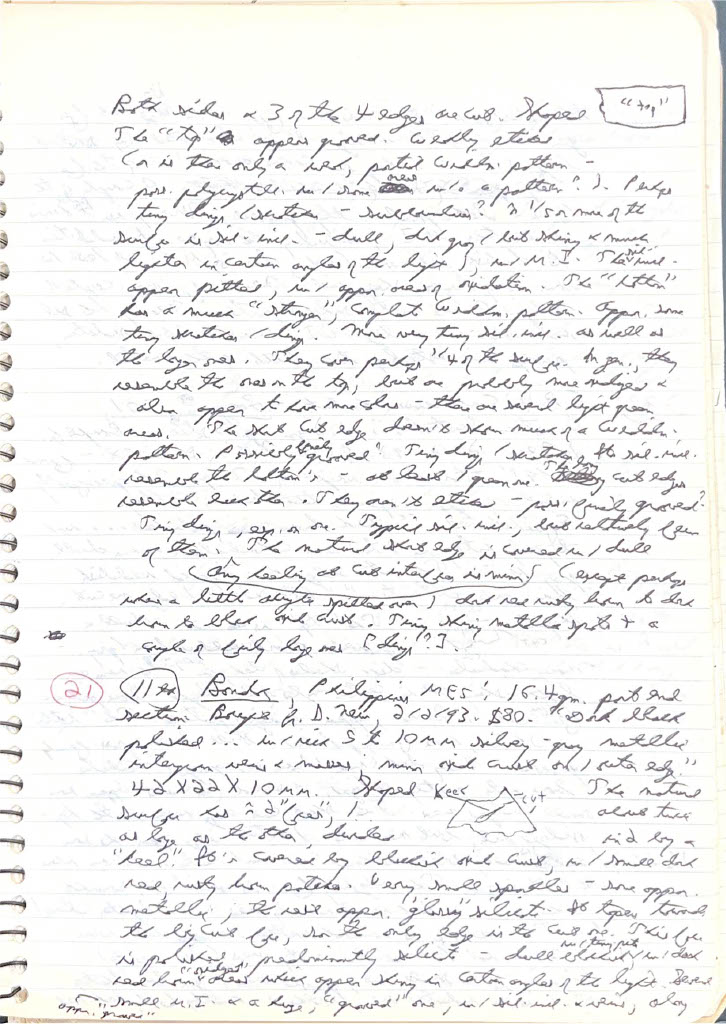 Both sides & 3 of the 4 edges are cut. Shaped "top"
The "top" appears grooved. Weakly etched
(or is this only a weak, partial Widdm. pattern -
poss. polycrystal. w/ some areas w/o a pattern?). Perhaps
tiny dings / scratches - ? ≈ 1/5 or more of the
surface is sil.-incl. - dull, dark gray (but shiny & much
lighter in certain angles of the light), w/ M.I. The sil.-incl.
appear pitted, w/ appar. areas of oxidation. The "bottom"
has a much "stronger", complete Widdm. pattern. Appar. some
tiny scratches / dings. More very tiny sil.-incl. as well as
the larger ones. They cover perhaps 1/4 of the surface. In gen., they
resemble the ones on the top, but are probably more &
also appear to have more color - there are several light green
areas. The short cut edge doesn't show much of a Widdm.
pattern. Possibly finely grooved? Tiny dings / scratches. Its sil.-incl.
resemble the bottom's - at least 1 green one. The cut edges
resemble each other. They aren't etched - poss. finely grooved?
Tiny dings, esp. on one. Typical sil.-incl., but relatively few
of them. The natural short edge is covered w/ dull
(Any at cut interfaces is min.) (except perhaps
where a little spilled over) dark red rusty brown to dark
brown to black oxid. crust. Tiny shiny metallic spots & a
couple of fairly large ones [dings?].
21 11 ex Bondoc, Philippines MES; 16.4 gm. part end
section. Bought fr. D. New, 2/2/93. $80. "Dark black
polished... w/ rich 5 to 10 mm silvery-gray metallic
intergrown veins & masses, minor oxid. crust on 1 outer edge."
42 X 22 X 10 mm. Shaped keel cut The natural
surface has ≈ 2 "faces", 1 about twice
as large as the other, divided mid by a
"keel". It's covered by blackish oxid. crust, w/ small dark
red rusty brown patches. Very small sparkles - some appar.
metallic, the rest appar. "glassy" silicate. It tapers towards
the big cut face, so the only edge is the cut one. This face
is polished, predominantly silicate - dull blackish w/ tiny pits w/ dark
red brown areas which appear shiny in certain angles of the light. Several
small M.I. & a huge, "grooved" one, w/ sil.-incl. & veins, along
appar. "grooves"